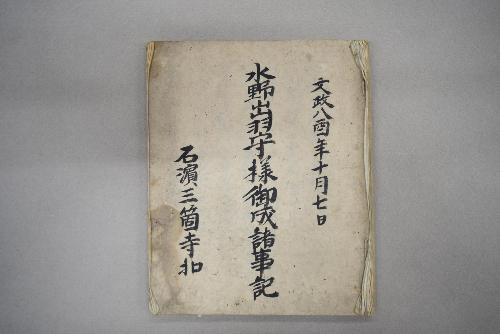 文政八酉年十月七日
水野出羽守様御成諸事記
石濱三箇寺扣